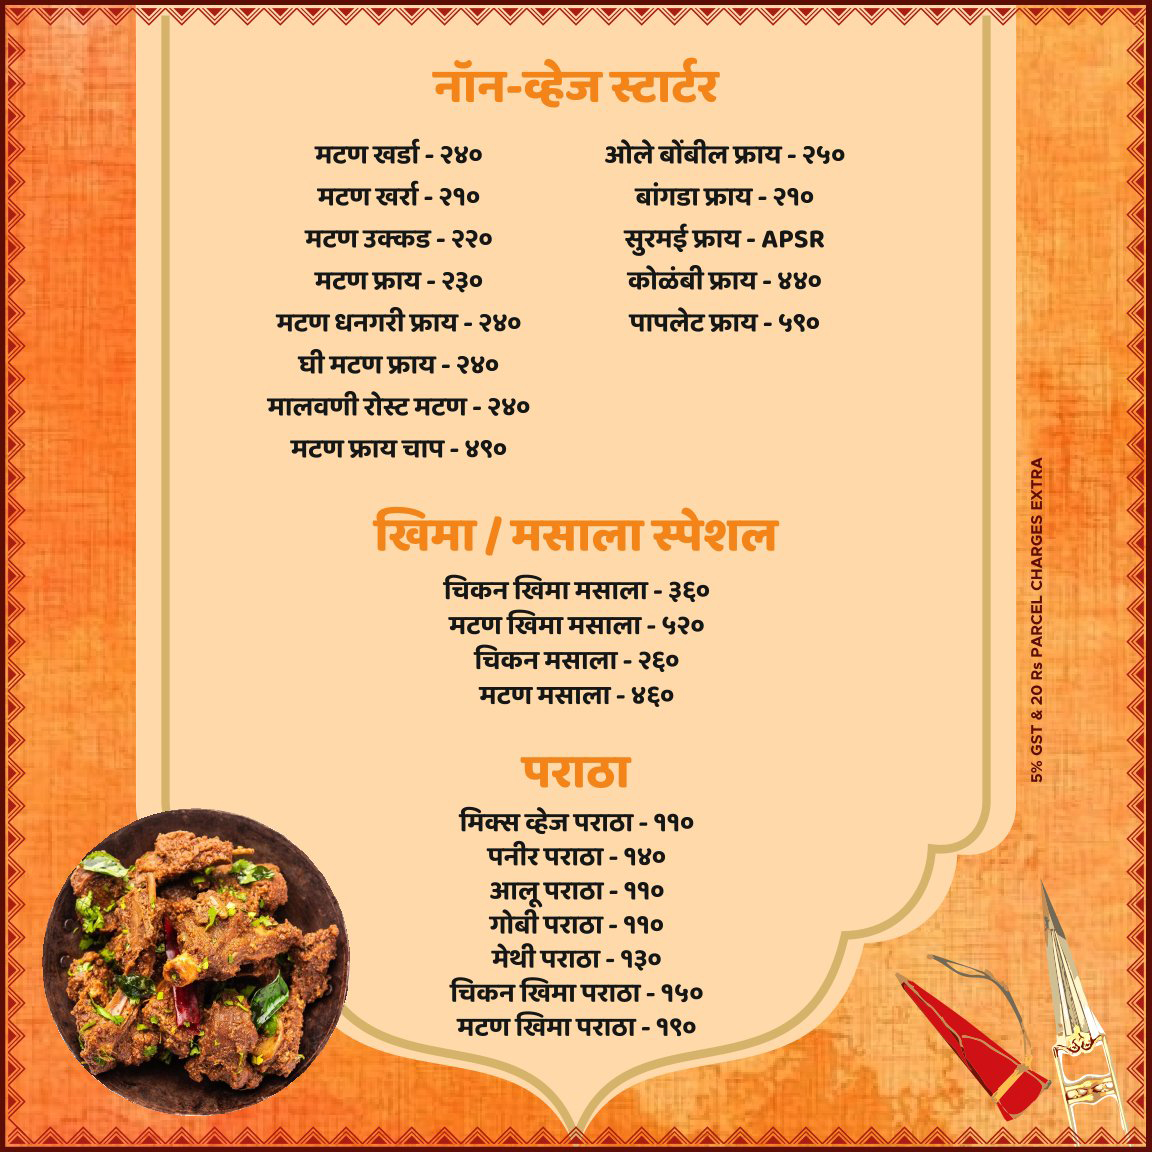 नॉन-व्हेज स्टार्टर
मटण खर्डा - २४०
मटण खर्रा - २१०
मटण उक्कड - २२०
मटण फ्राय - २३०
मटण धनगरी फ्राय - २४०
घी मटण फ्राय - २४०
मालवणी रोस्ट मटण - २४०
मटण फ्राय चाप - ४९०
ओले बोंबील फ्राय - २५०
बांगडा फ्राय - २१०
सुरमई फ्राय - APSR
कोळंबी फ्राय - ४४०
पापलेट फ्राय - ५९०
खिमा / मसाला स्पेशल
चिकन खिमा मसाला - ३६०
मटण खिमा मसाला - ५२०
चिकन मसाला - २६०
मटण मसाला - ४६०
पराठा
मिक्स व्हेज पराठा - ११०
पनीर पराठा - १४०
आलू पराठा - ११०
गोबी पराठा - ११०
मेथी पराठा - १३०
चिकन खिमा पराठा - १५०
मटण खिमा पराठा - १९०
5% GST & 20 Rs PARCEL CHARGES EXTRA